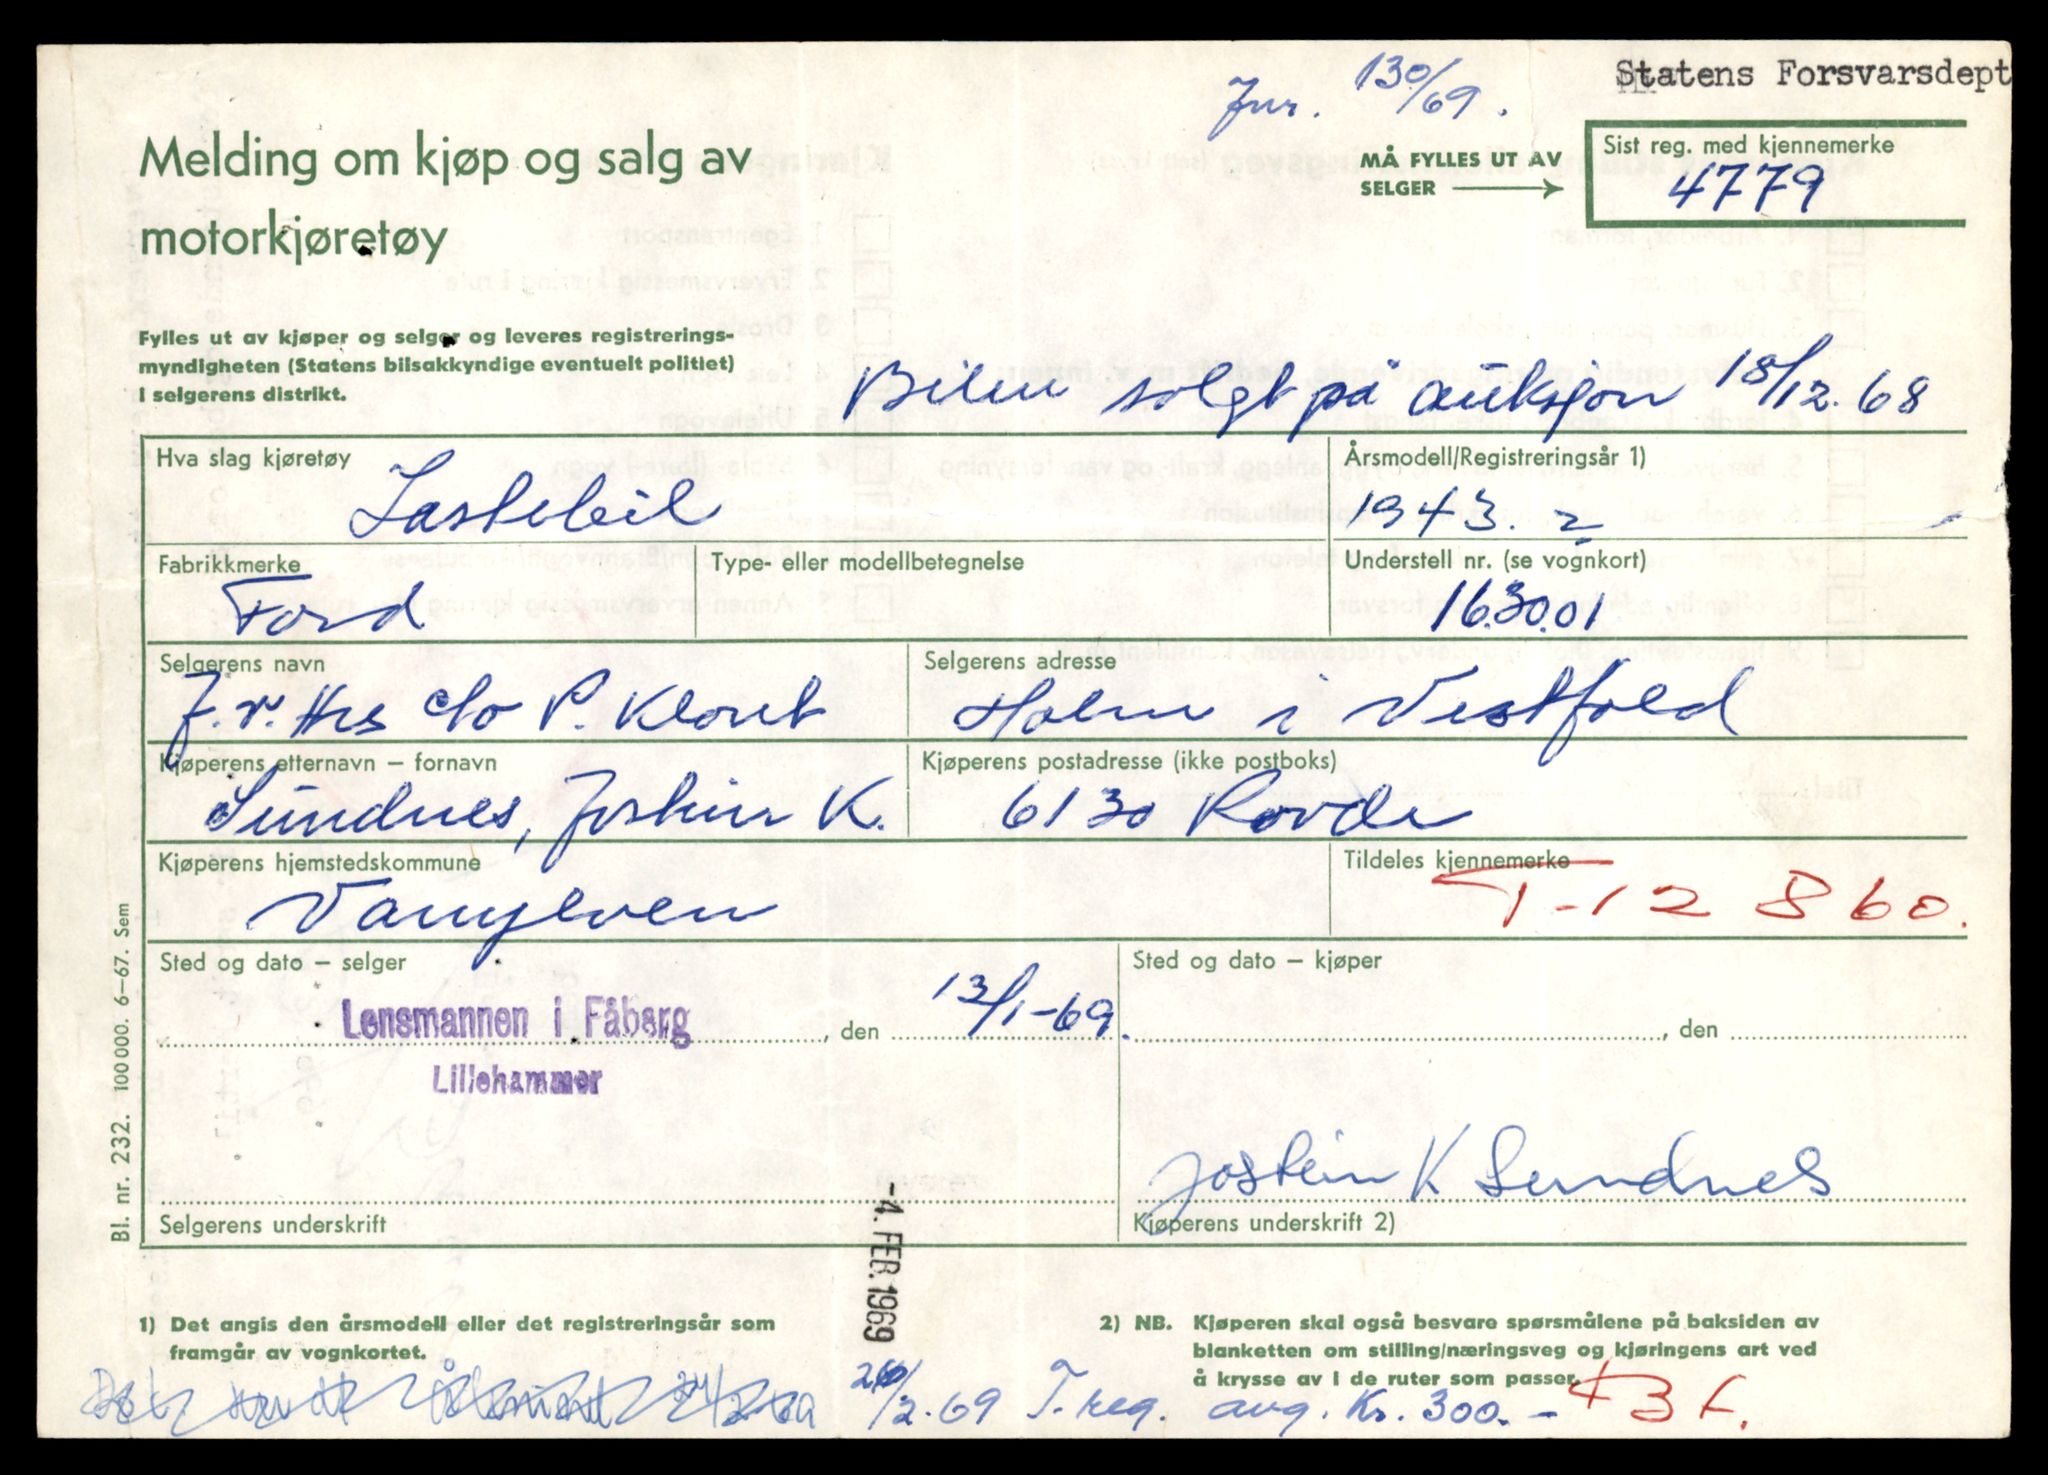 Jnr. 130/69.
Statens Forsvarsdept
Melding om kjøp og salg av
motorkjøretøy
MÅ FYLLES UT AV
SELGER
Sist reg. med kjennemerke
4779
Fylles ut av kjøper og selger og leveres registrerings-
myndigheten (Statens bilsakkyndige eventuelt politiet)
i selgerens distrikt.
Bilen solgt på auksjon 18/12.68
Hva slag kjøretøy
Lastebil
Årsmodell/Registreringsår 1)
1943.
Fabrikkmerke
Ford
Type- eller modellbetegnelse
Understell nr. (se vognkort)
163001
Selgerens navn
F.v. Hrs c/o P. Klout
Selgerens adresse
Holm i Vestfold
Kjøperens etternavn – fornavn
Sundnes, Jostein K.
Kjøperens postadresse (ikke postboks)
6130 Rovde
Kjøperens hjemstedskommune
Vanylven
Tildeles kjennemerke
T-12860.
Sted og dato – selger
Lensmannen i Fåberg
Lillehammer
, den 13/1-69.
Sted og dato – kjøper
, den
Jostein K Sundnes
Selgerens underskrift
Kjøperens underskrift 2)
-4. FEB. 1969
Bl. nr. 232. 100 000. 6–67. Sem
1) Det angis den årsmodell eller det registreringsår som
framgår av vognkortet.
2) NB. Kjøperen skal også besvare spørsmålene på baksiden av
blanketten om stilling/næringsveg og kjøringens art ved
å krysse av i de ruter som passer.
/2.69 T. reg. avg. Kr. 300.-